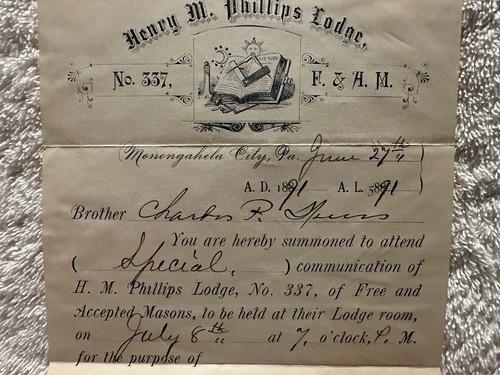 Henry M. Phillips Lodge,
No. 337, F. & A. M.
Monongahela City, Pa. June 27th
A. D. 1891 A. L. 5891
Brother Charles F.
You are hereby summoned to attend
( Special, ) communication of
H. M. Phillips Lodge, No. 337, of Free and
Accepted Masons, to be held at their Lodge room,
on July 8th at 7, o'clock, P. M.
for the purpose of